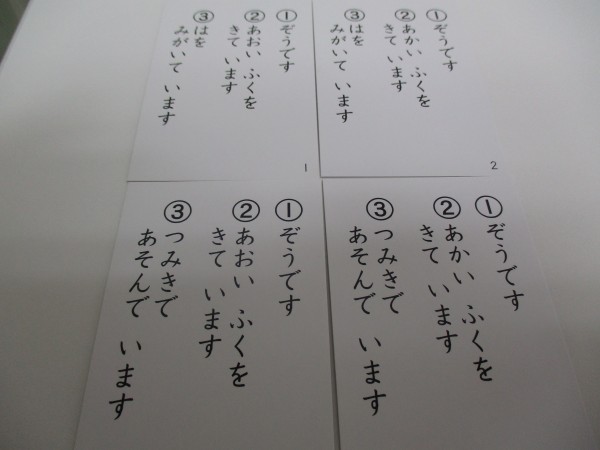 ①ぞうです
②あおい ふくを
きて います
③はを
みがいて います
1
①ぞうです
②あかい ふくを
きて います
③はを
みがいて います
2
①ぞうです
②あおい ふくを
きて います
③つみきで
あそんで います
①ぞうです
②あかい ふくを
きて います
③つみきで
あそんで います